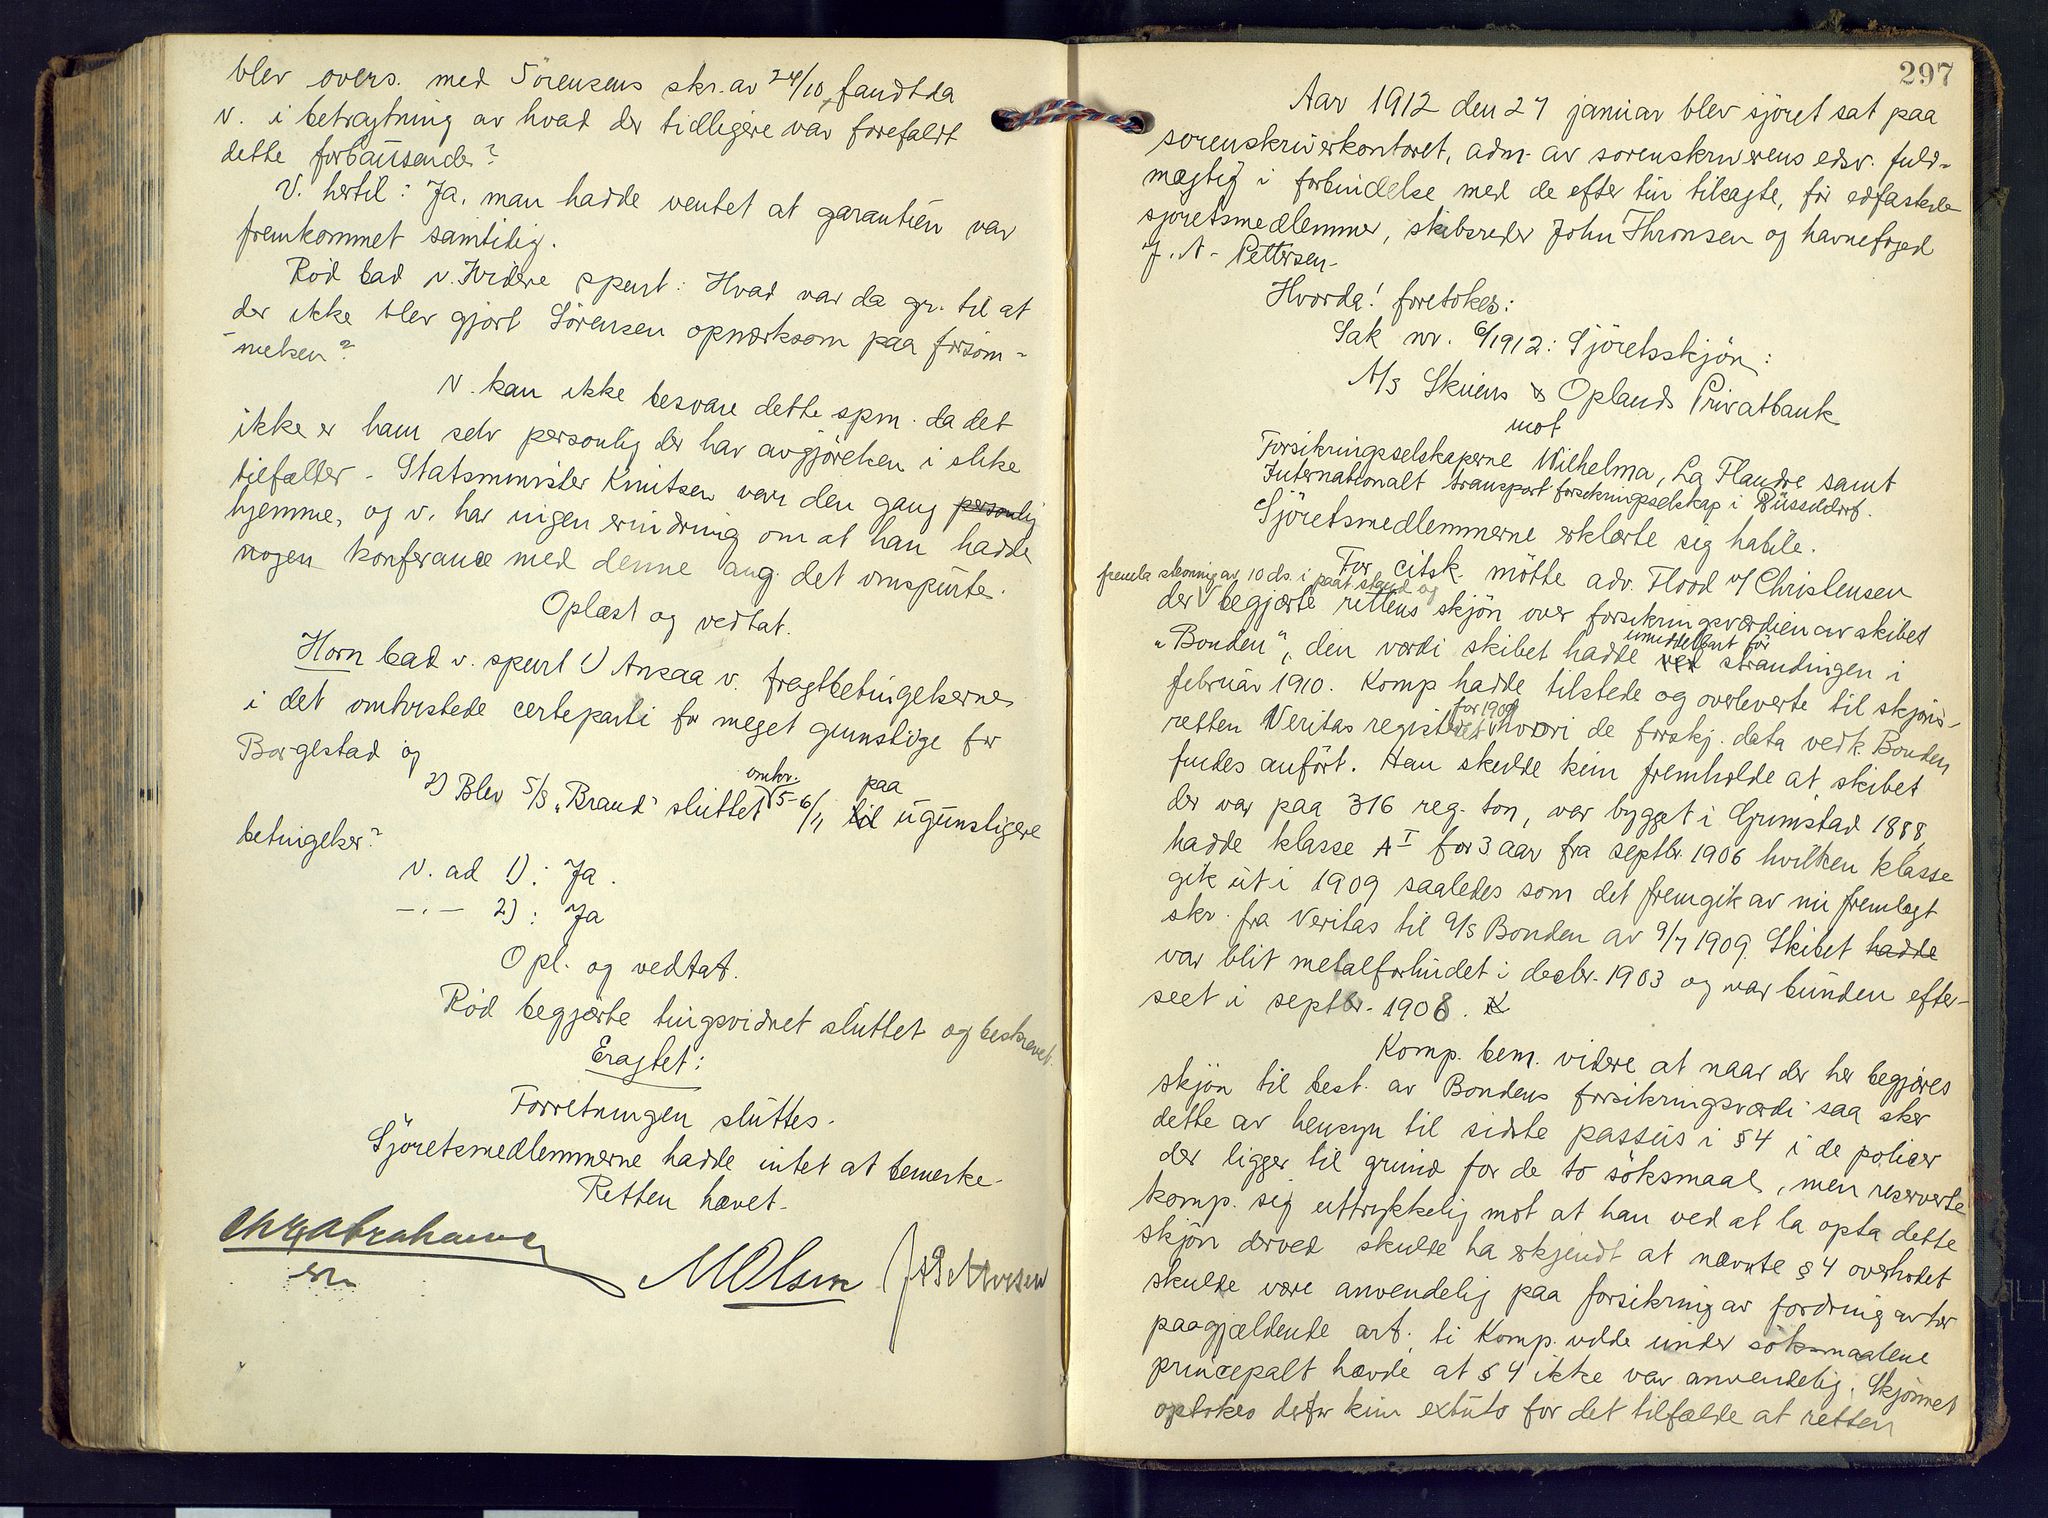 blev overs. med Sörensens skr. av 24/10, fandt da
v. i betragtning av hvad der tidligere var forefaldt
dette forbausende?
V. hertil: Ja, man hadde ventet at garantien var
fremkommet samtidig.
Röd bad v. videre spurt: Hvad var da gr. til at
der ikke blev gjort Sörensen opmerksom paa forsöm-
melsen?
V. kan ikke besvare dette spm. da det
ikke er ham selv personlig der har avgjörelsen i slike
tilfælder - Statsminister Knutsen var den gang personlig
hjemme, og v. har ingen erindring om at han hadde
nogen konferance med denne ang. det omspurte.
Oplæst og vedtat.
Horn bad v. spurt 1) Ansaa v. fragtbetingelserne
i det omtvistede certeparti for meget gunstige for
Borgestad og
2) Blev S/S "Brand" sluttet omtr. 5-6/11 til paa ugunstigere
betingelser?
V. ad 1): Ja.
- " - 2): Ja
Opl. og vedtat.
Röd begjærte tingsvidnet sluttet og beskrevet.
Eragtet:
Forretningen sluttes.
Sjöretsmedlemmerne hadde intet at bemerke.
Retten hævet.
Chr Abrahamsen
M Olsen J A Pettersen
297
Aar 1912 den 27 januar blev sjöret sat paa
sorenskriverkontoret, adm. av sorenskriverens edsv. fuld-
mægtig i forbindelse med de efter tur tilsagte, för edfæstede
sjöretsmedlemmer, skibsreder John Thronsen og havnefoged
J. A. Pettersen.
Hvorda! foretokes:
Sak nr. 6/1912: Sjöretsskjön:
A/S Skiens & Oplands Privatbank
mot
Forsikringsselskaperne Wilhelma, La Flandre samt
Internationalt transportforsikringsselskap i Düsseldorf.
Sjöretsmedlemmerne erklærte sig habile.
For citsk. mötte adv. Flood v/ Christensen
fremla stevning av 10 ds. i paat. stand og
der begjærte rettens skjön over forsikringsværdien av skibet
"Bonden", den værdi skibet hadde ved umiddelbart för strandingen i
februar 1910. Komp hadde tilstede og overleverte til skjöns-
retten Veritas register for 1909 hvori de forskj. data vedk. Bonden
fandtes anfört. Han skulde kun fremholde at skibet
der var paa 316 reg. ton, var bygget i Grimstad 1888,
hadde klasse A I for 3 aar fra septbr. 1906 hvilken klasse
gik ut i 1909 saaledes som det fremgik av nu fremlagt
skr. fra Veritas til A/S Bonden av 9/7 1909. Skibet hadde
var blit metalforhudet i decbr. 1903 og var bunden efter-
seet i septbr. 1908. K
Komp. bem. videre at naar der her begjæres
skjön til best. av Bondens forsikringsværdi saa sker
dette av hensyn til sidste passus i § 4 i de policer
der ligger til grund for de to söksmaal, men reserverte
komp. sig uttrykkelig mot at han ved at la opta dette
skjön derved skulde ha erkjendt at nævnte § 4 overhodet
skulde være anvendelig paa forsikring av fordring av her
paagjældende art, ti Komp. vilde under söksmaalene
principalt hævde at § 4 ikke var anvendelig. Skjönnet
optokes derfor kun ex tuto for det tilfælde at retten